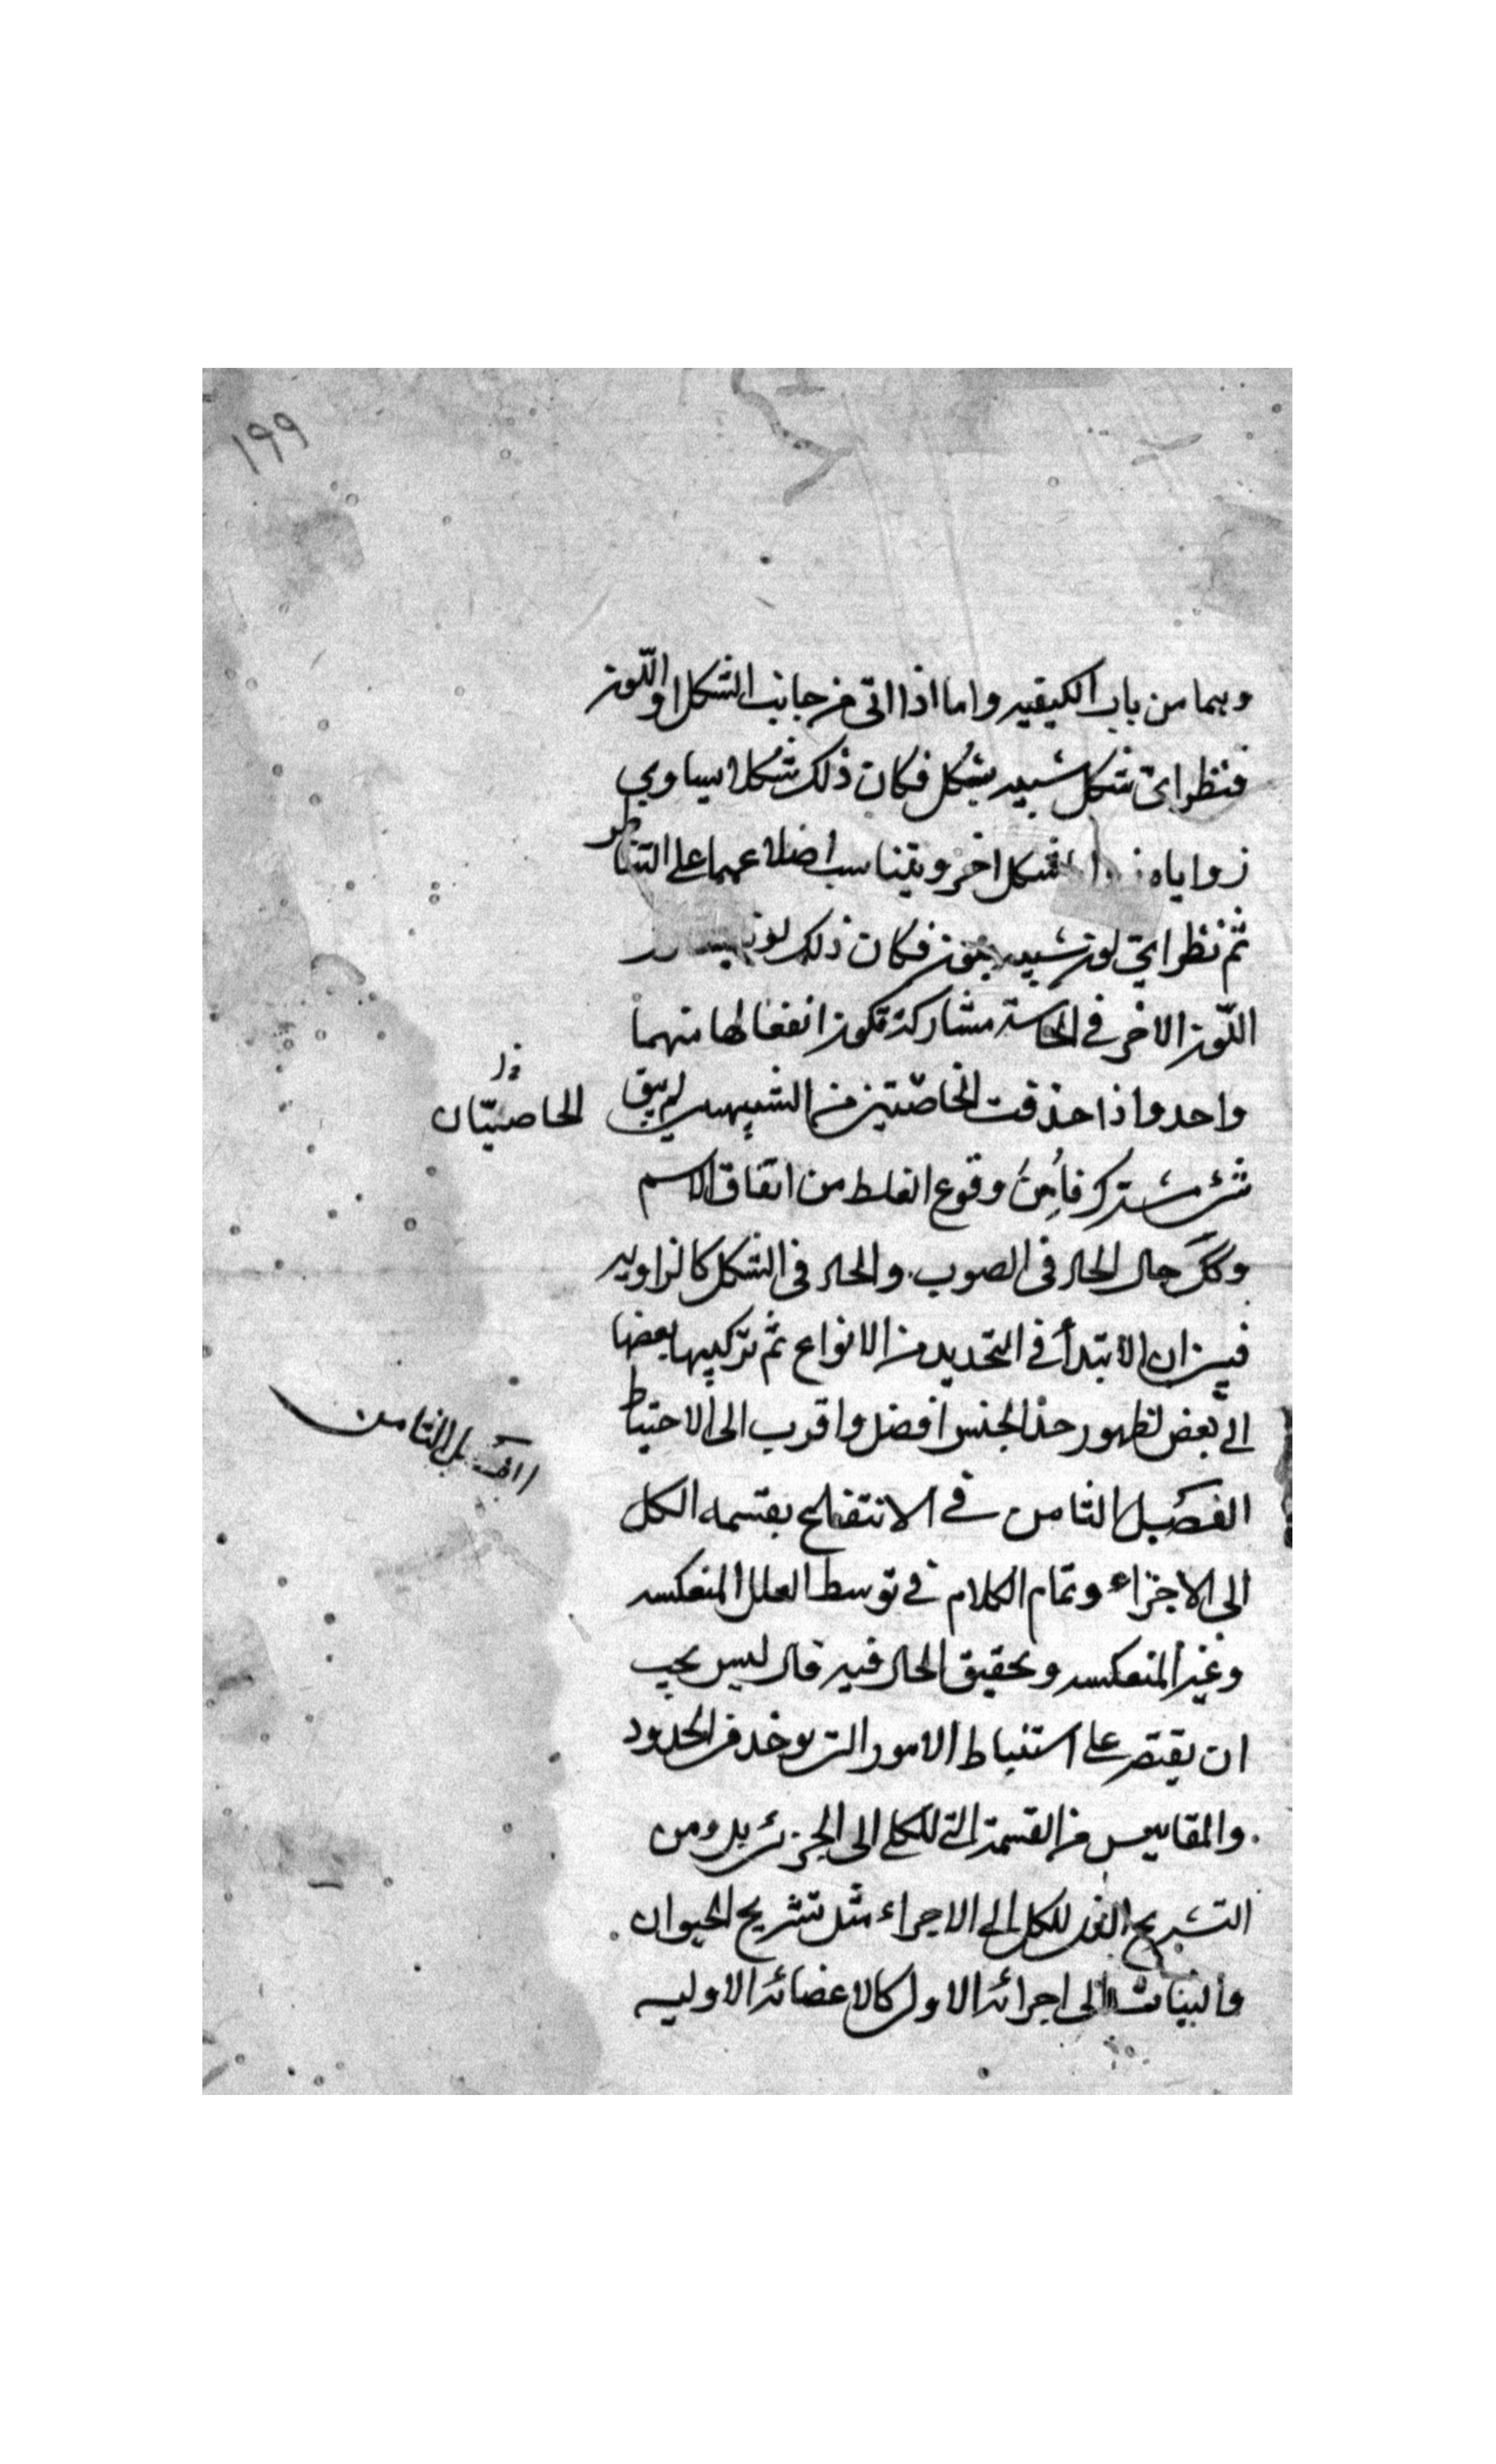 ١٩٩
وهما من باب الكيفيه واما اذا اتى من جانب الشكل او اللّون
فنظر اىّ شكل شبيه بشكل فكان ذلك شكلا يساوي
زواياه شكل اخر ويتناسب اضلاعهما على التناظر
ثم نظر اىّ لون شبيه بلون فكان ذلك لون
اللّون الاخر فى الحاسة مشاركة تكون انفعالها منهما
واحد واذا حذفت الخاصّتين من الشبيهين لم يبق
الخاصيّتان
شئ مشترك فأُمِنُ وقوع الغلط من اتفاق الاسم
وكك حال الحاد فى الصوت والحاد فى الشكل كالزاويه
فبين ان الابتدأ فى التحديد من الانواع ثم تركيبها بعضها
الى بعض لظهور حد الجنس افضل واقرب الى الاحتياط
الفصل الثامن
الفصل الثامن فى الانتفاع بقسمه الكل
الى الاجزاء وتمام الكلام فى توسط العلل المنعكسه
وغير المنعكسه وتحقيق الحال فيه قال ليس يجب
ان يقتصر على استنباط الامور التى يوخذ فى الحدود
والمقاييس من القسمة التى للكلى الى الجزئى بل ومن
التشريح الذى للكل الى الاجزاء مثل تشريح الحيوان
والنبات الى اجزائه الاول كالاعضائه الاوليه